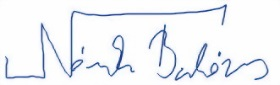 Németh Balázs